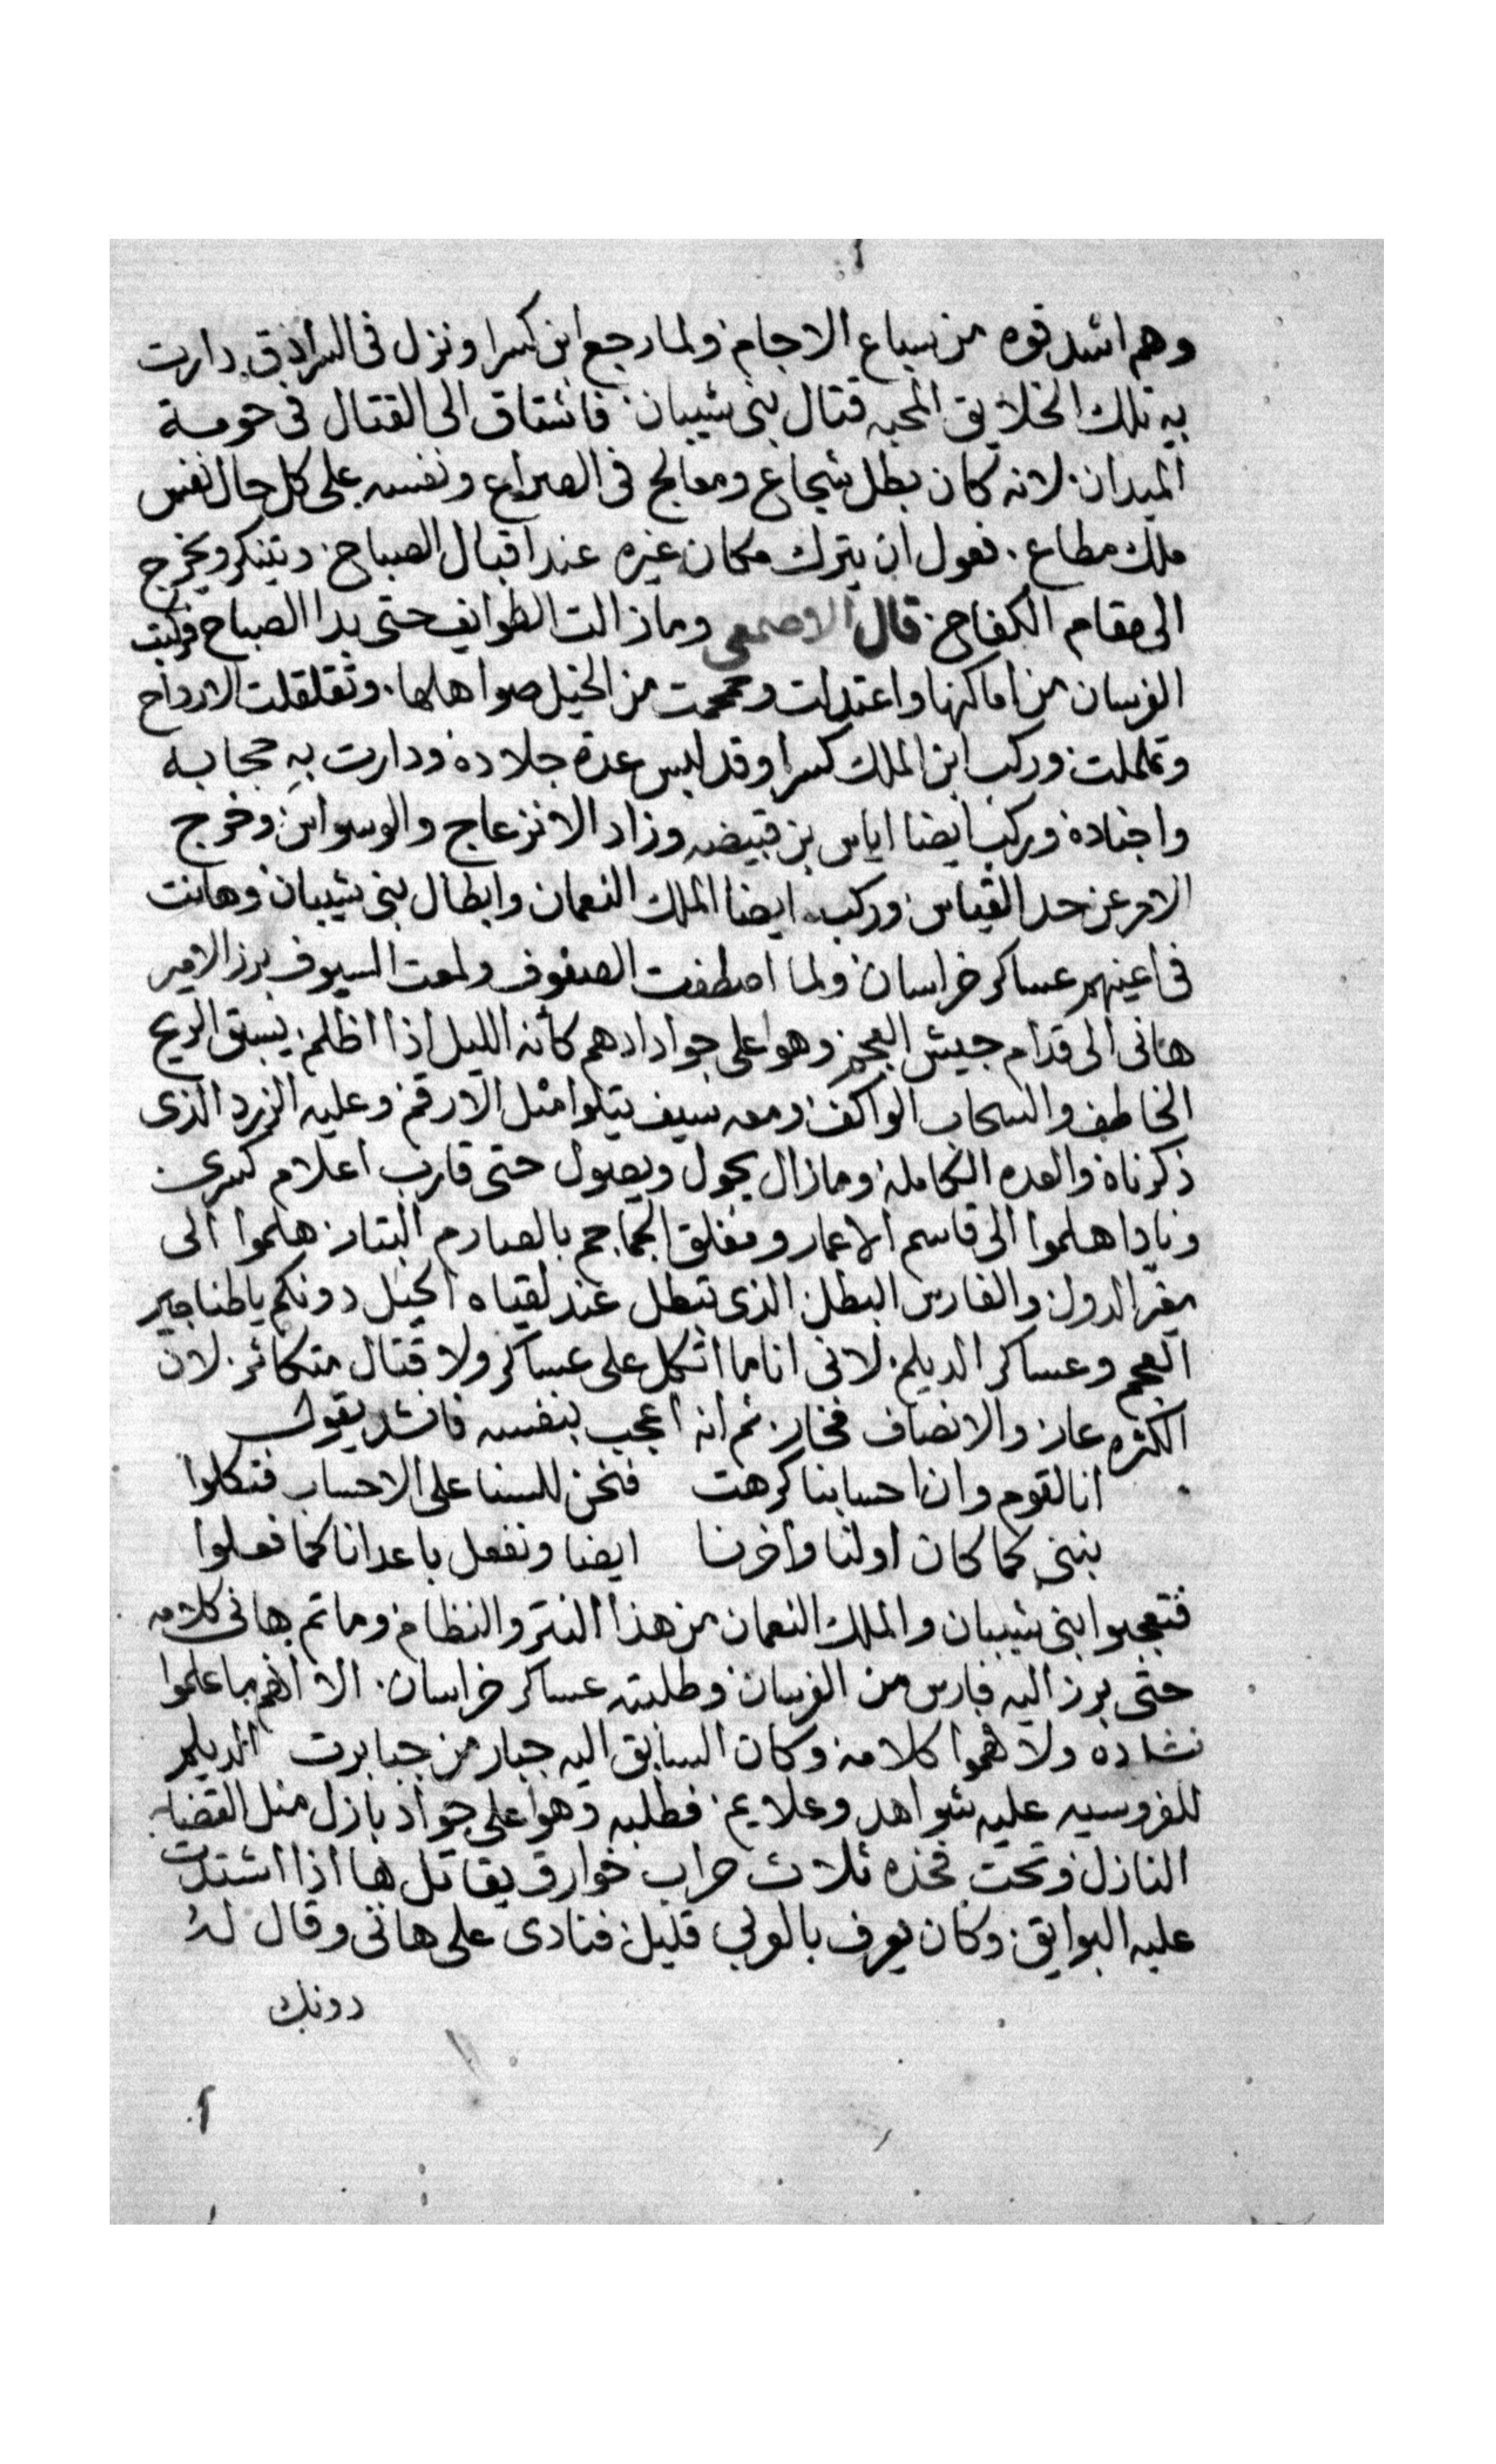 وهم اشد قوه من سباع الاجام ولما رجع ابن كسرا ونزل فى السرادق دارت
به تلك الخلايق المحبه قتال بنى شيبان فاشتاق الى القتال فى حومة
الميدان لانه كان بطل شجاع ومعالج فى الصراع ونفسه على كل حال نفس
ملك مطاع فعول ان يترك مكان غيره عند اقبال الصباح ويتنكر ويخرج
الى مقام الكفاح قال الاصمعى ومازالت الطوايف حتى بدا الصباح فركبت
الفرسان من اماكنها واعتدلت وحمحمت من الخيل صواهلها وتقلقلت الارواح
وتململت وركب ابن الملك كسرا وقد لبس عدة جلاده ودارت به حجابه
واجناده وركب ايضا اياس بن قبيضه وزاد الانزعاج والوسواس وخرج
الامر عن حد القياس وركب ايضا الملك النعمان وابطال بنى شيبان وهانت
فى اعينهم عساكر خراسان ولما اصطفت الصفوف ولمعت السيوف برز الامير
هانى الى قدام جيش العجم وهوا على جواد ادهم كأنه الليل اذا اظلم يسبق الريح
الخاطف والسحاب الواكف ومعه سيف يتلوا مثل الارقم وعليه الزرد الذى
ذكرناه والعده الكامله ومازال يجول ويصول حتى قارب اعلام كسرى
ونادا هلموا الى قاسم الاعمار ومفلق الجماجم بالصارم البتار هلموا الى
مغير الدول والفارس البطل الذى تبطل عند لقياه الحيل دونكم ياطناجير
العجم وعساكر الديلم لانى انا ما اتكل على عساكر ولا قتال متكاثر لان
الكثره عار والانصاف فخار ثم انه اعجب بنفسه فانشد يقول
انا لقوم وان احسابنا كرهت فنحن للسنا على الاحساب فتكلوا
نبنى كما كان اولنا واخرنا ايضا ونفعل باعدانا كما فعلوا
فتعجبوا بنى شيبان والملك النعمان من هذا النتر والنظام وماتم هانى كلامه
حتى برز اليه فارس من الفرسان وطلبته عساكر خراسان الا انهم ما علموا
نشاده ولا فهموا كلامه وكان السابق اليه جبار من جبابرت الديلم
للفروسيه عليه شواهد وعلايم فطلبه وهوا على جواد بازل مثل القضا
النازل وتحت فخذه ثلاث حراب خوارق يقاتل بها اذا اشتدت
عليه البوايق وكان يعرف بالوبى قليل فنادى على هانى وقال له
دونك